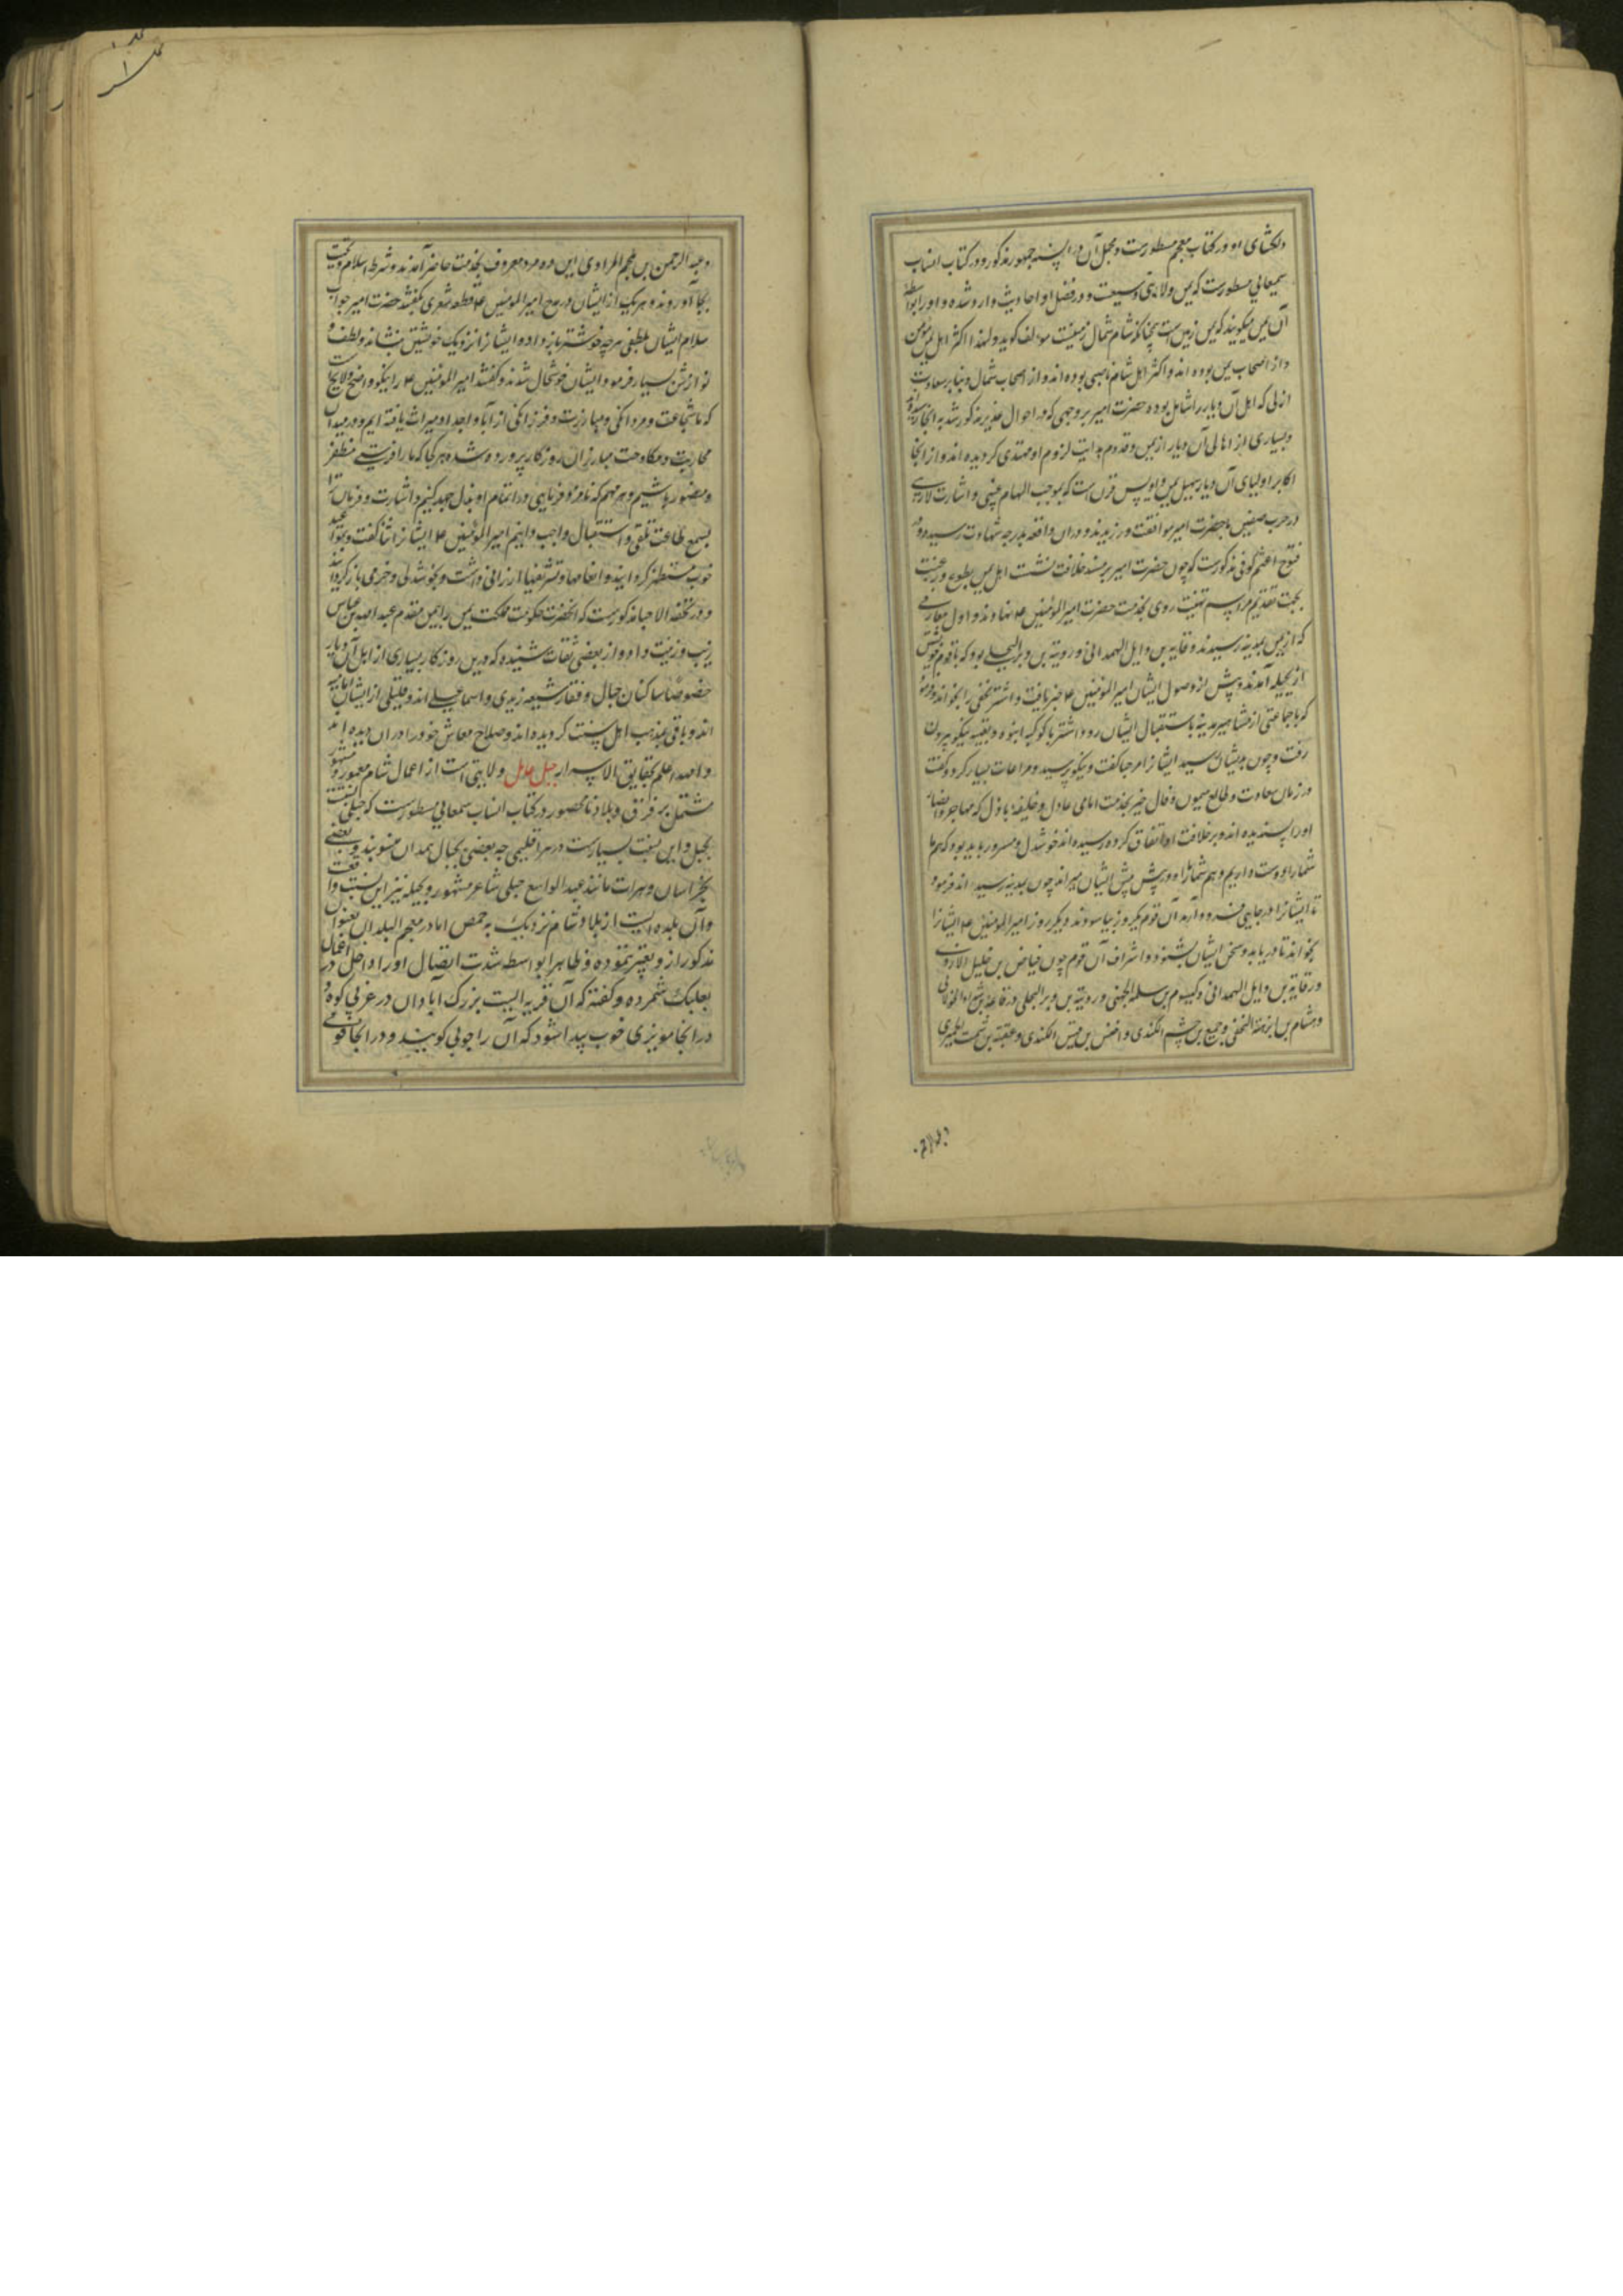 دلکشای او در کتاب معجم مسطورست و مجمل آن در السنه جمهور مذکور و در کتاب انساب
سمعانی مسطورست که یمن ولایتی وسیعست و در فضل او احادیث وارد شده و او را بواسطه
آن یمن میگویند که یمین زمین است چنانکه شام شمال زمینست مؤلف گوید و لهذا اکثر اهل یمن مؤمن
و از اصحاب یمین بوده اند و اکثر اهل شام ناصبی بوده اند و از اصحاب شمال و بنابر سعادت
ازلی که اهل آن دیار را شامل بوده حضرت امیر بر وجهی که در احوال مذکور شد به آنجا رسیده
و بسیاری از اهالی آن دیار از یمن قدوم هدایت لزوم او مهتدی گردیده اند و از آنجا
اکابر اولیای آن دیار سهیل یمن اویس قرن است که بموجب الهام غیبی و اشارت لاریبی
در حرب صفین با حضرت امیر موافقت ورزیدند و در آن واقعه بدرجه شهادت رسید و در
فتوح اعثم کوفی مذکورست که چون حضرت امیر بر مسند خلافت نشست اهل یمن بطوع و رغبت
بجهت تقدیم مراسم تهنیت روی بخدمت حضرت امیر المؤمنین ع نهادند و اول معارفی
که از یمن بمدینه رسیدند رفاعه بن وایل الهمدانی و رویبه بن وبر البجلی بود که با قوم خویش
از بجیله آمدند و پیش از وصول ایشان امیر المؤمنین ع خبر یافت و اشتر نخعی را بخواند و فرمود
که با جماعتی از مشاهیر مدینه باستقبال ایشان رود اشتر با کوکبه انبوه و تعبیه نیکو بیرون
رفت و چون بدیشان رسید ایشانرا مرحبا گفت و نیکو پرسید و مراعات بسیار کرد و گفت
در زمان سعادت و طالع میمون و فال خیر بخدمت امامی عادل و خلیفه باذل که مهاجر و انصار
او را پسندیده اند و بر خلافت او اتفاق کرده رسیده اند خوشدل و مسرور باید بود که هم ما
شما را دوست داریم و هم شما ما را و در پیش پیش ایشان میراند چون بمدینه رسیدند فرمود
تا ایشانرا در جایی فرود آرند آن قوم یکروز بیاسودند و دیگر روز امیر المؤمنین ع ایشانرا
بخواند تا دریابد و سخن ایشان بشنود و اشراف آن قوم چون فیاض بن خلیل الازدی
و رفاعه بن وایل الهمدانی و کیسوم بن سلمه الجهنی و رویبه بن وبر البجلی و رفاعه بن شداد الخولانی
و هشام بن ابرهه النخعی و جمیع بن جشم الکندی و اخنس بن قیس الکندی و عقبه بن الحمیری
و عبد الرحمن بن ملجم المرادی این ده مرد معروف بخدمت حاضر آمدند و شرط اسلام و تحیت
بجا آوردند و هر یک از ایشان در مدح امیر المؤمنین ع قطعه شعری گفتند حضرت امیر جواب
سلام ایشان بلطفی هر چه خوشتر باز داد و ایشانرا نزدیک خویشتن بنشاند و لطف و
نوازش بسیار فرمود ایشان خوشحال شدند و گفتند امیر المؤمنین ع را نیکو واضح و لایحست
که ما شجاعت و مردانگی و مبارزت و فرزانگی از آبا و اجداد میراث یافته ایم و در میدان
محاربت و مکاوحت مبارزان روزگار پرورده شده هر کجا که ما را فرستی مظفر
و منصور باشیم و هر مهم که نامزد فرمایی در اتمام او بذل جهد کنیم و اشارت و فرمان ترا
بسمع طاعت تلقی و استقبال واجب دانیم امیر المؤمنین ع ایشانرا ثنا گفت و بمواعید
خوب مستظهر گردانید و انعامها و تشریفها ارزانی داشت و بخوشدلی و خرمی باز گردانید
و در تحفة الاحبا مذکورست که آنحضرت حکومت مملکت یمن را بیمن مقدم عبد الله بن عباس
زیب و زینت داد و از بعضی ثقات شنیده که درین روزگار بسیاری از اهل آن دیار
خصوصا ساکنان جبال و قفار شیعه زیدی و اسماعیلی اند و قلیلی از ایشان امامیه
اند و باقی بمذهب اهل سنت گردیده اند و صلاح معاش خود را در آن دیده اند
و الله اعلم بحقایق الاسرار جبل عامل ولایتی است از اعمال شام معمور و مشهور
مشتمل بر قرق و بلاد نامحصور در کتاب انساب سمعانی مسطورست که جبلی نسبت
بجبل و این نسبت بسیارست در هر اقلیمی چه بعضی بجبال همدان منسوبند و بعضی
بخراسان و هرات مانند عبد الواسع جبلی شاعر مشهور و بجبله نیز این نسبت واقعست
و آن بلده ایست از بلاد شام نزدیک به حمص اما در معجم البلدان بعنوان
مذکور ازو تعبیر ننموده و ظاهرا بواسطه شدت اتصال او را داخل در اعمال
بعلبک شمرده و گفته که آن قریه ایست بزرگ آبادان در غربی کوه و
در آنجا مویزی خوب پیدا شود که آن را جوبی گویند و در آنجا قومی